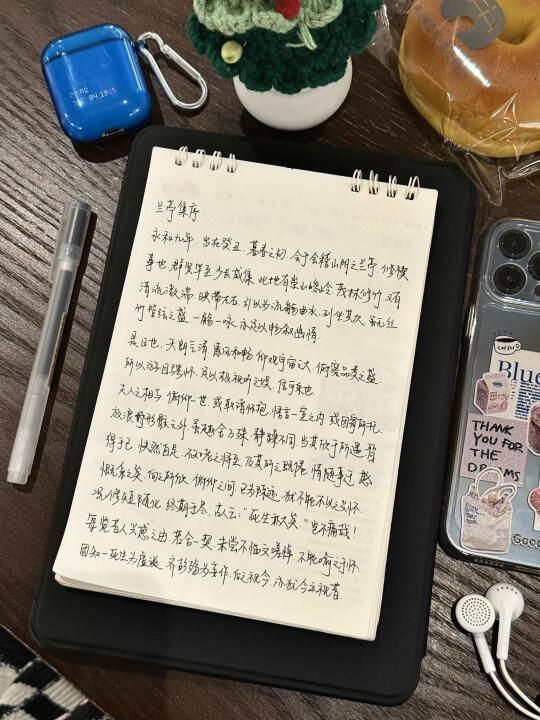 兰亭集序
永和九年,岁在癸丑,暮春之初,会于会稽山阴之兰亭,修禊
事也。群贤毕至,少长咸集。此地有崇山峻岭,茂林修竹,又有
清流激湍,映带左右,引以为流觞曲水,列坐其次,虽无丝
竹管弦之盛,一觞一咏,亦足以畅叙幽情。
是日也,天朗气清,惠风和畅,仰观宇宙之大,俯察品类之盛,
所以游目骋怀,足以极视听之娱,信可乐也。
夫人之相与,俯仰一世,或取诸怀抱,悟言一室之内,或因寄所托,
放浪形骸之外。虽趣舍万殊,静躁不同,当其欣于所遇,暂
得于己,快然自足,不知老之将至,及其所之既倦,情随事迁,感
慨系之矣。向之所欣,俯仰之间,已为陈迹,犹不能不以之兴怀。
况修短随化,终期于尽。古人云:"死生亦大矣。"岂不痛哉!
每览昔人兴感之由,若合一契,未尝不临文嗟悼,不能喻之于怀。
固知一死生为虚诞,齐彭殇为妄作。后之视今,亦犹今之视昔。
THANK
YOU FOR
THE
DREAMS
Blue
coffee